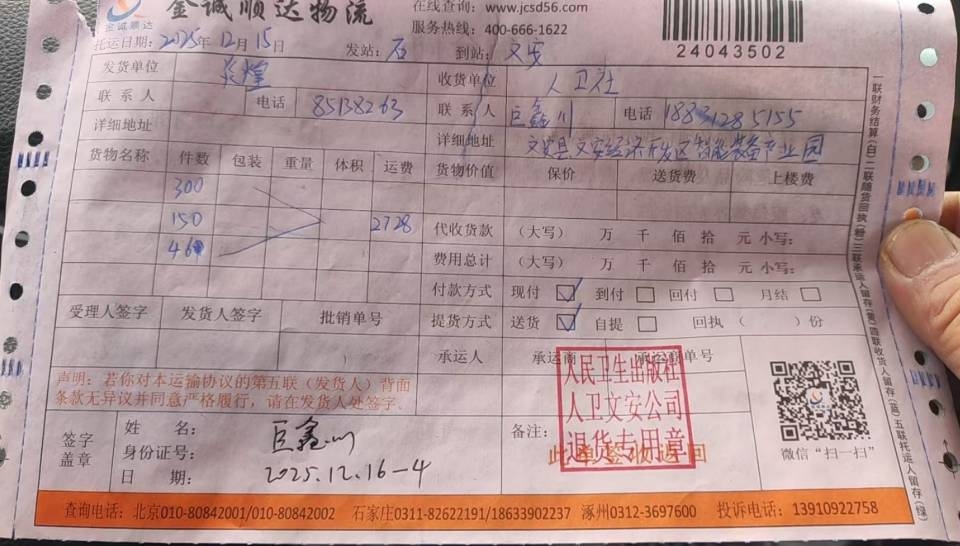 金诚顺达物流
在线查询：www.jcsd56.com
服务热线：400-666-1622
金诚顺达
24043502
托运日期：2025年12月15日 发站：石 到站：文安
发货单位 炎煌 收货单位 人卫社
联系人 电话 85138263 联系人 巨鑫川 电话 18831285155
详细地址 详细地址 文安县文安经济开发区智能装备产业园
货物名称 件数 包装 重量 体积 运费 货物价值 保价 送货费 上楼费
300
150 2728 代收货款 （大写） 万 千 佰 拾 元 小写：
46 费用总计 （大写） 万 千 佰 拾 元 小写：
付款方式 现付 ☑ 到付 □ 回付 □ 月结 □
受理人签字 发货人签字 批销单号 提货方式 送货 ☑ 自提 □ 回执（ ）份
承运人 承运商 承运商单号
声明：若你对本运输协议的第五联（发货人）背面
条款无异议并同意严格履行，请在发货人处签字。
人民卫生出版社
人卫文安公司
退货专用章
签字
盖章
姓 名： 巨鑫川
身份证号：
日 期： 2025.12.16-4
备注：
此单签收返回
微信“扫一扫”
一联财务结算(白)二联随货回执(粉)三联承运人留存(黄)四联收货人留存(蓝)五联托运人留存(绿)
查询电话：北京010-80842001/010-80842002 石家庄0311-82622191/18633902237 涿州0312-3697600 投诉电话：13910922758